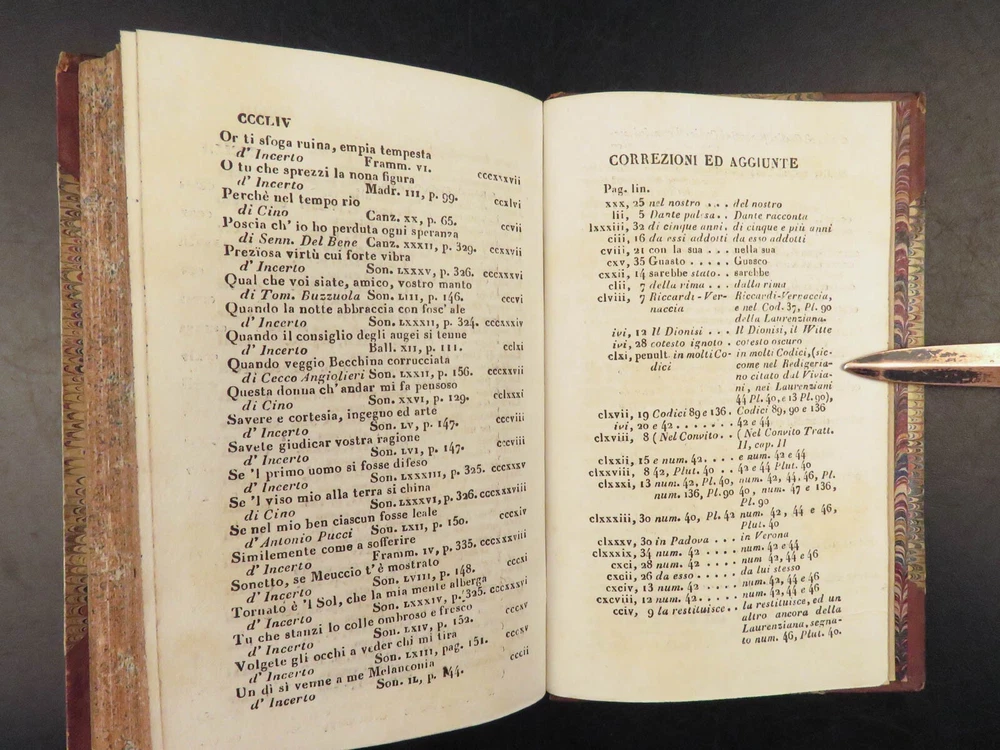 CCCLIV
Or ti sfoga ruina, empia tempesta
d' Incerto Framm. VI. cccxxxvii
O tu che sprezzi la nona figura
d' Incerto Madr. III, p. 99. ccxlvi
Perchè nel tempo rio
di Cino Canz. XX, p. 65. ccvii
Poscia ch' io ho perduta ogni speranza
di Senn. Del Bene Canz. XXXII, p. 329. ccxxvii
Preziosa virtù cui forte vibra
d' Incerto Son. LXXXV, p. 326. cccxxxvi
Qual che voi siate, amico, vostro manto
di Tom. Buzzuola Son. LIII, p. 146. cccvi
Quando la notte abbraccia con fosc' ale
d' Incerto Son. LXXXII, p. 324. cccxxxiv
Quando il consiglio degli augei si tenne
d' Incerto Ball. XII, p. 111. cclxi
Quando veggio Becchina corrucciata
di Cecco Angiolieri Son. LXII, p. 156. ccxxvii
Questa donna ch' andar mi fa pensoso
di Cino Son. XXVI, p. 129. cclxxi
Savere e cortesia, ingegno ed arte
d' Incerto Son. LV, p. 147. cccviii
Savete giudicar vostra ragione
d' Incerto Son. LVI, p. 147. cccviii
Se 'l primo uomo si fosse difeso
d' Incerto Son. LXXXIII, p. 325. cccxxxv
Se 'l viso mio alla terra si china
di Cino Son. LXXXVI, p. 326. cccxxxviii
Se nel mio ben ciascun fosse leale
d' Antonio Pucci Son. LXII, p. 150. cccxiv
Similemente come a sofferire
d' Incerto Framm. IV, p. 335. cccxxxviii
Sonetto, se Meuccio t' è mostrato
d' Incerto Son. LVIII, p. 148. cccxi
Tornato è 'l Sol, che la mia mente alberga
d' Incerto Son. LXXXIV, p. 325. cccxxxvi
Tu che stanzi lo colle ombroso e fresco
d' Incerto Son. LXIV, p. 152. cccxv
Volgete gli occhi a veder chi mi tira
d' Incerto Son. LXIII, pag. 151. cccxv
Un dì si venne a me Melanconia
d' Incerto Son. IL, p. 144. cccii
CORREZIONI ED AGGIUNTE
Pag. lin.
xxx, 25 nel nostro . . . del nostro
lii, 5 Dante palesa . . Dante racconta
lxxxiii, 32 di cinque anni. di cinque e più anni
ciii, 16 da essi addotti da esso addotti
cviii, 21 con la sua . . . nella sua
cxv, 35 Guasto . . . . . Guasco
cxxii, 14 sarebbe stato . . sarebbe
clii, 7 della rima . . . dalla rima
clviii, 7 Riccardi-Ver- Riccardi-Vernaccia,
naccia e nel Cod. 37, Pl. 90
della Laurenziana.
ivi, 12 Il Dionisi . . . Il Dionisi, il Witte
ivi, 28 cotesto ignoto . cotesto oscuro
clxi, penult. in molti Co- in molti Codici, (sic-
dici come nel Redigeria-
no citato dal Vivia-
ni, nei Laurenziani
44 Pl. 40, e 13 Pl. 90),
clxvii, 19 Codici 89 e 136 . Codici 89, 90 e 136
ivi, 20 e 42 . . . . . . . 42 e 44
clxviii, 8 (Nel Convito . . (Nel Convito Tratt.
II, cap. 11
clxxii, 15 e num. 42 . . . . e num. 42 e 44
clxxviii, 8 42, Plut. 40 . . 42 e 44 Plut. 40
clxxxi, 13 num. 42, Pl. 40, num. 42, 44, 46, Pl.
num. 136, Pl. 90 40, num. 47 e 136,
Pl. 90
clxxxiii, 30 num. 40, Pl. 42 num. 42, 44 e 46,
Plut. 40
clxxxv, 30 in Padova . . . in Verona
clxxxix, 34 num. 42 . . . . num. 42 e 44
cxci, 28 num. 42 . . . . num. 42, 44 e 46
cxcii, 26 da esso . . . . . da lui stesso
cxciv, 13 num. 42 . . . . num. 42, 44 e 46
cxcviii, 12 num. 42 . . . . num. 42, 44 e 46
cciv, 9 la restituisce . . la restituisce, ed un
altro ancora della
Laurenziana, segna-
to num. 46, Plut. 40.